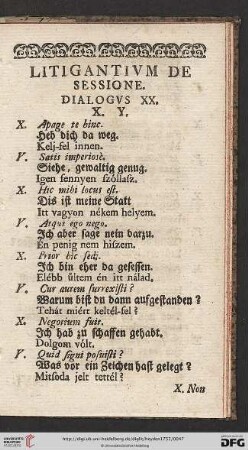 LITIGANTIVM DE
SESSIONE.
DIALOGVS XX.
X. Y.
X. Apage te hinc.
Heb dich da weg.
Kelj-fel innen.
Y. Satis imperiosè.
Siehe, gewaltig genug.
Igen fennyen fzóllafz.
X. Hic mihi locus est.
Dis ist meine Statt
Itt vagyon nékem helyem.
Y. Atqui ego nego.
Jch aber sage nein darzu.
Én penig nem hifzem.
X. Prior hic sedj.
Jch bin eher da gesessen.
Elébb ültem én itt nálad.
Y. Cur autem surrexisti?
Warum bist du dann aufgestanden?
Tehát miért keltél-fel?
X. Negotium fuit.
Jch hab zu schaffen gehabt.
Dolgom vólt.
Y. Quid signi posuisti?
Was vor ein Zeichen hast gelegt?
Mitsoda jelt tettél?
X. Non